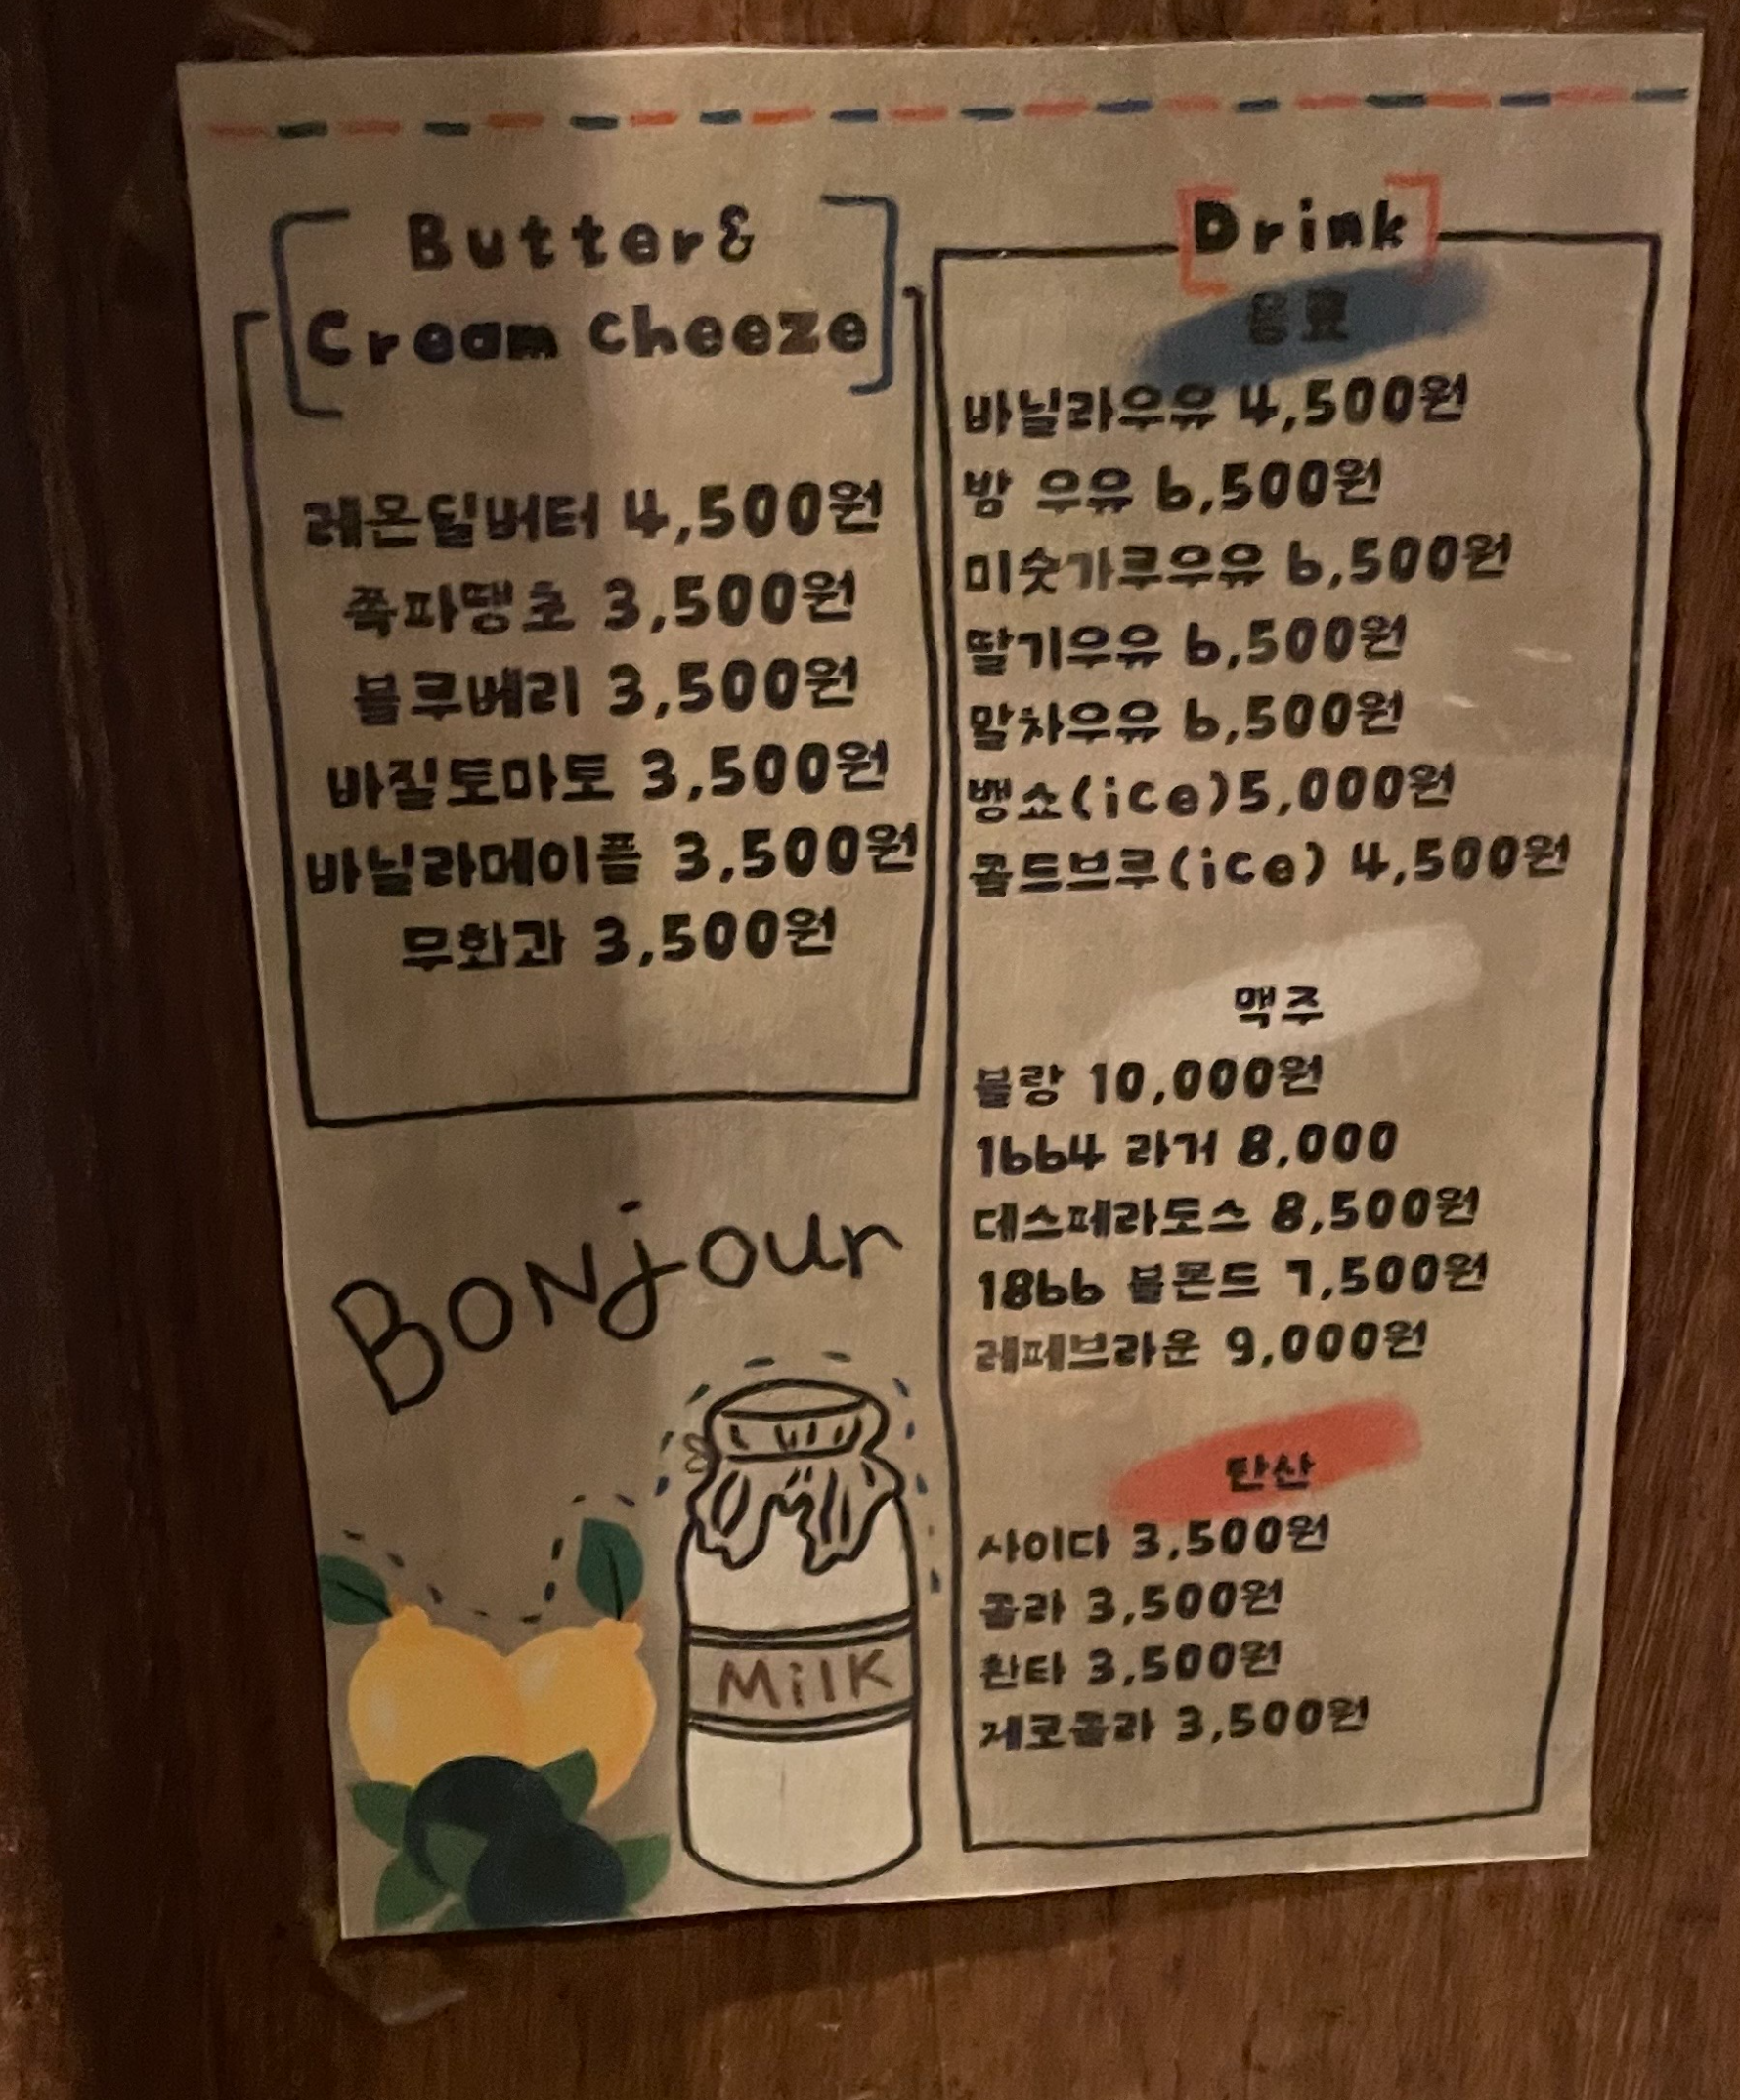 Butter&
Cream Cheeze
레몬딜버터 4,500원
쪽파땡초 3,500원
블루베리 3,500원
바질토마토 3,500원
바닐라메이플 3,500원
무화과 3,500원
Bonjour
Milk
Drink
음료
바닐라우유 4,500원
밤 우유 6,500원
미숫가루우유 6,500원
딸기우유 6,500원
말차우유 6,500원
뱅쇼(ice)5,000원
콜드브루(ice) 4,500원
맥주
블랑 10,000원
1664 라거 8,000
데스페라도스 8,500원
1866 블몬드 7,500원
레페브라운 9,000원
탄산
사이다 3,500원
콜라 3,500원
환타 3,500원
제로콜라 3,500원